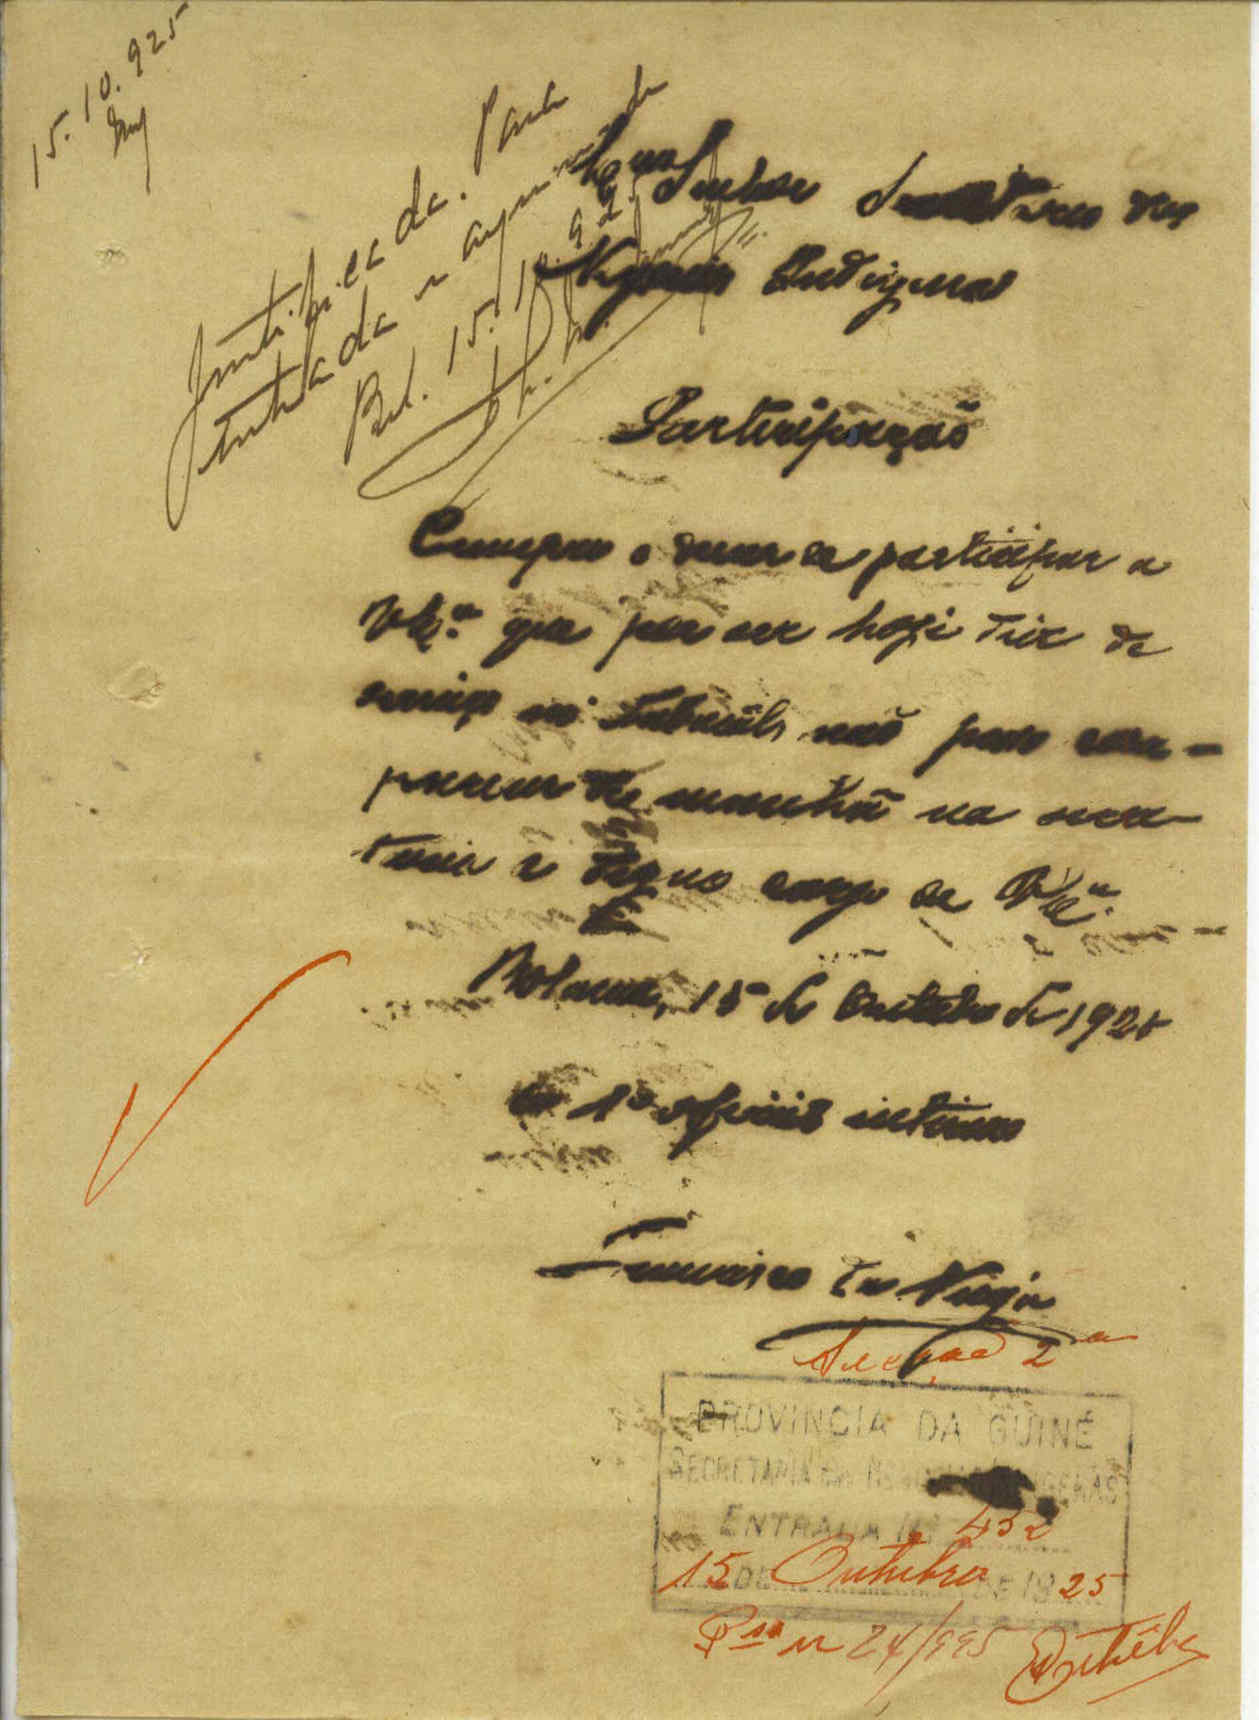 15.10.925
Justificada. Para
entrada e
Bol. 15.10.925
Exmo Senhor Secretario dos
Negocios Indigenas
Participação
Cumpro o dever de participar a
V Exa. que por ser hoje dia de
serviço no Tribunal, não posso com-
parecer de manhã na secre-
taria e digno cargo de V Exa.
Bolama, 15 de Outubro de 1925
O 1º oficial interino
Francisco da Veiga
Secção 2a
PROVINCIA DA GUINÉ
SECRETARIA DOS NEGOCIOS INDIGENAS
ENTRADA Nº 452
15 DE Outubro DE 1925
Pso n 24/995